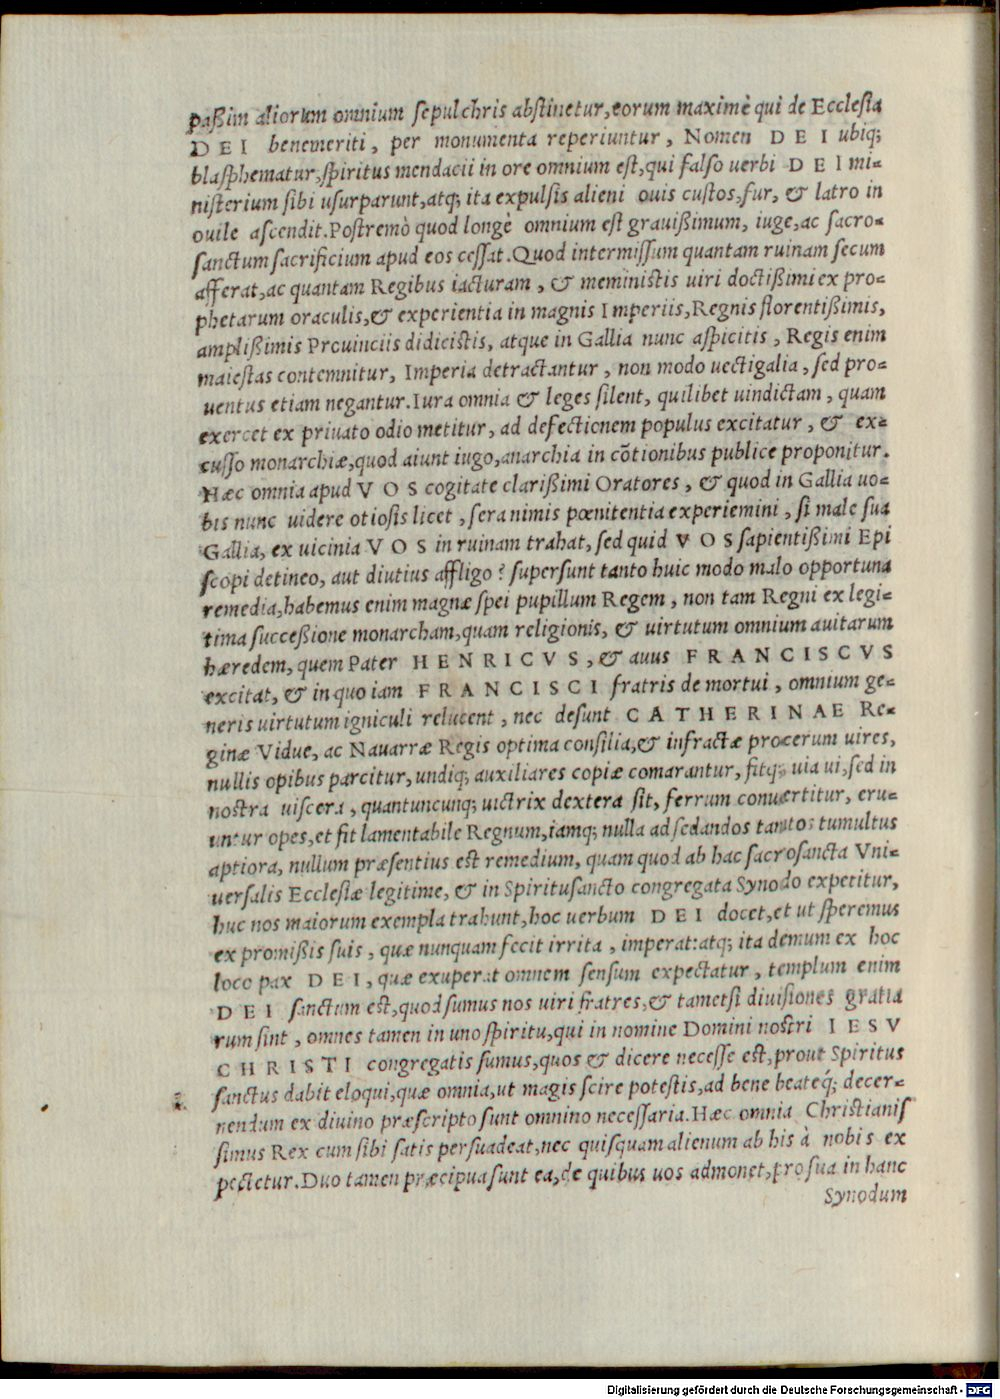 paßim aliorum omnium sepulchris abstinetur, eorum maximè qui de Ecclesia
DEI benemeriti, per monumenta reperiuntur, Nomen DEI ubiq;
blasphematur, spiritus mendacii in ore omnium est, qui falso uerbi DEI mi-
nisterium sibi usurparunt, atq; ita expulsis alieni ouis custos, fur, & latro in
ouile ascendit. Postremò quod longè omnium est grauißimum, iuge, ac sacro-
sanctum sacrificium apud eos cessat. Quod intermissum quantam ruinam secum
afferat, ac quantam Regibus iacturam, & meministis uiri doctißimi ex pro-
phetarum oraculis, & experientia in magnis Imperiis, Regnis florentißimis,
amplißimis Prouinciis didicistis, atque in Gallia nunc aspicitis, Regis enim
maiestas contemnitur, Imperia detractantur, non modo uectigalia, sed pro-
uentus etiam negantur. Iura omnia & leges silent, quilibet uindictam, quam
exercet ex priuato odio metitur, ad defectionem populus excitatur, & ex-
cusso monarchiæ, quod aiunt iugo, anarchia in cõtionibus publice proponitur.
Hæc omnia apud VOS cogitate clarißimi Oratores, & quod in Gallia uo-
bis nunc uidere otiosis licet, sera nimis pœnitentia experiemini, si male sua
Gallia, ex uicinia VOS in ruinam trahat, sed quid VOS sapientißimi Epi
scopi detineo, aut diutius affligo? supersunt tanto huic modo malo opportuna
remedia, habemus enim magnæ spei pupillum Regem, non tam Regni ex legi-
tima succeßione monarcham, quam religionis, & uirtutum omnium auitarum
hæredem, quem Pater HENRICVS, & auus FRANCISCVS
excitat, & in quo iam FRANCISCI fratris de mortui, omnium ge-
neris uirtutum igniculi relucent, nec desunt CATHERINAE Re-
ginæ Vidue, ac Nauarræ Regis optima consilia, & infractæ procerum uires,
nullis opibus parcitur, undiq; auxiliares copiæ comarantur, fitq; uia ui, sed in
nostra uiscera, quantuncunq; uictrix dextera sit, ferrum conuertitur, eru-
untur opes, et fit lamentabile Regnum, iamq; nulla ad sedandos tantos tumultus
aptiora, nullum præsentius est remedium, quam quod ab hac sacrosancta Vni-
uersalis Ecclesiæ legitime, & in Spiritusancto congregata Synodo expetitur,
huc nos maiorum exempla trahunt, hoc uerbum DEI docet, et ut speremus
ex promißis suis, quæ nunquam fecit irrita, imperat: atq; ita demum ex hoc
loco pax DEI, quæ exuperat omnem sensum expectatur, templum enim
DEI sanctum est, quod sumus nos uiri fratres, & tametsi diuisiones gratia
rum sint, omnes tamen in uno spiritu, qui in nomine Domini nostri IESV
CHRISTI congregatis sumus, quos & dicere necesse est, prout Spiritus
sanctus dabit eloqui, quæ omnia, ut magis scire potestis, ad bene beateq́; decer-
nendum ex diuino præscripto sunt omnino necessaria. Hæc omnia Christianis
simus Rex cum sibi satis persuadeat, nec quisquam alienum ab his à nobis ex
pectetur. Duo tamen præcipua sunt ea, de quibus uos admonet, pro sua in hanc
Synodum
Digitalisierung gefördert durch die Deutsche Forschungsgemeinschaft - DFG